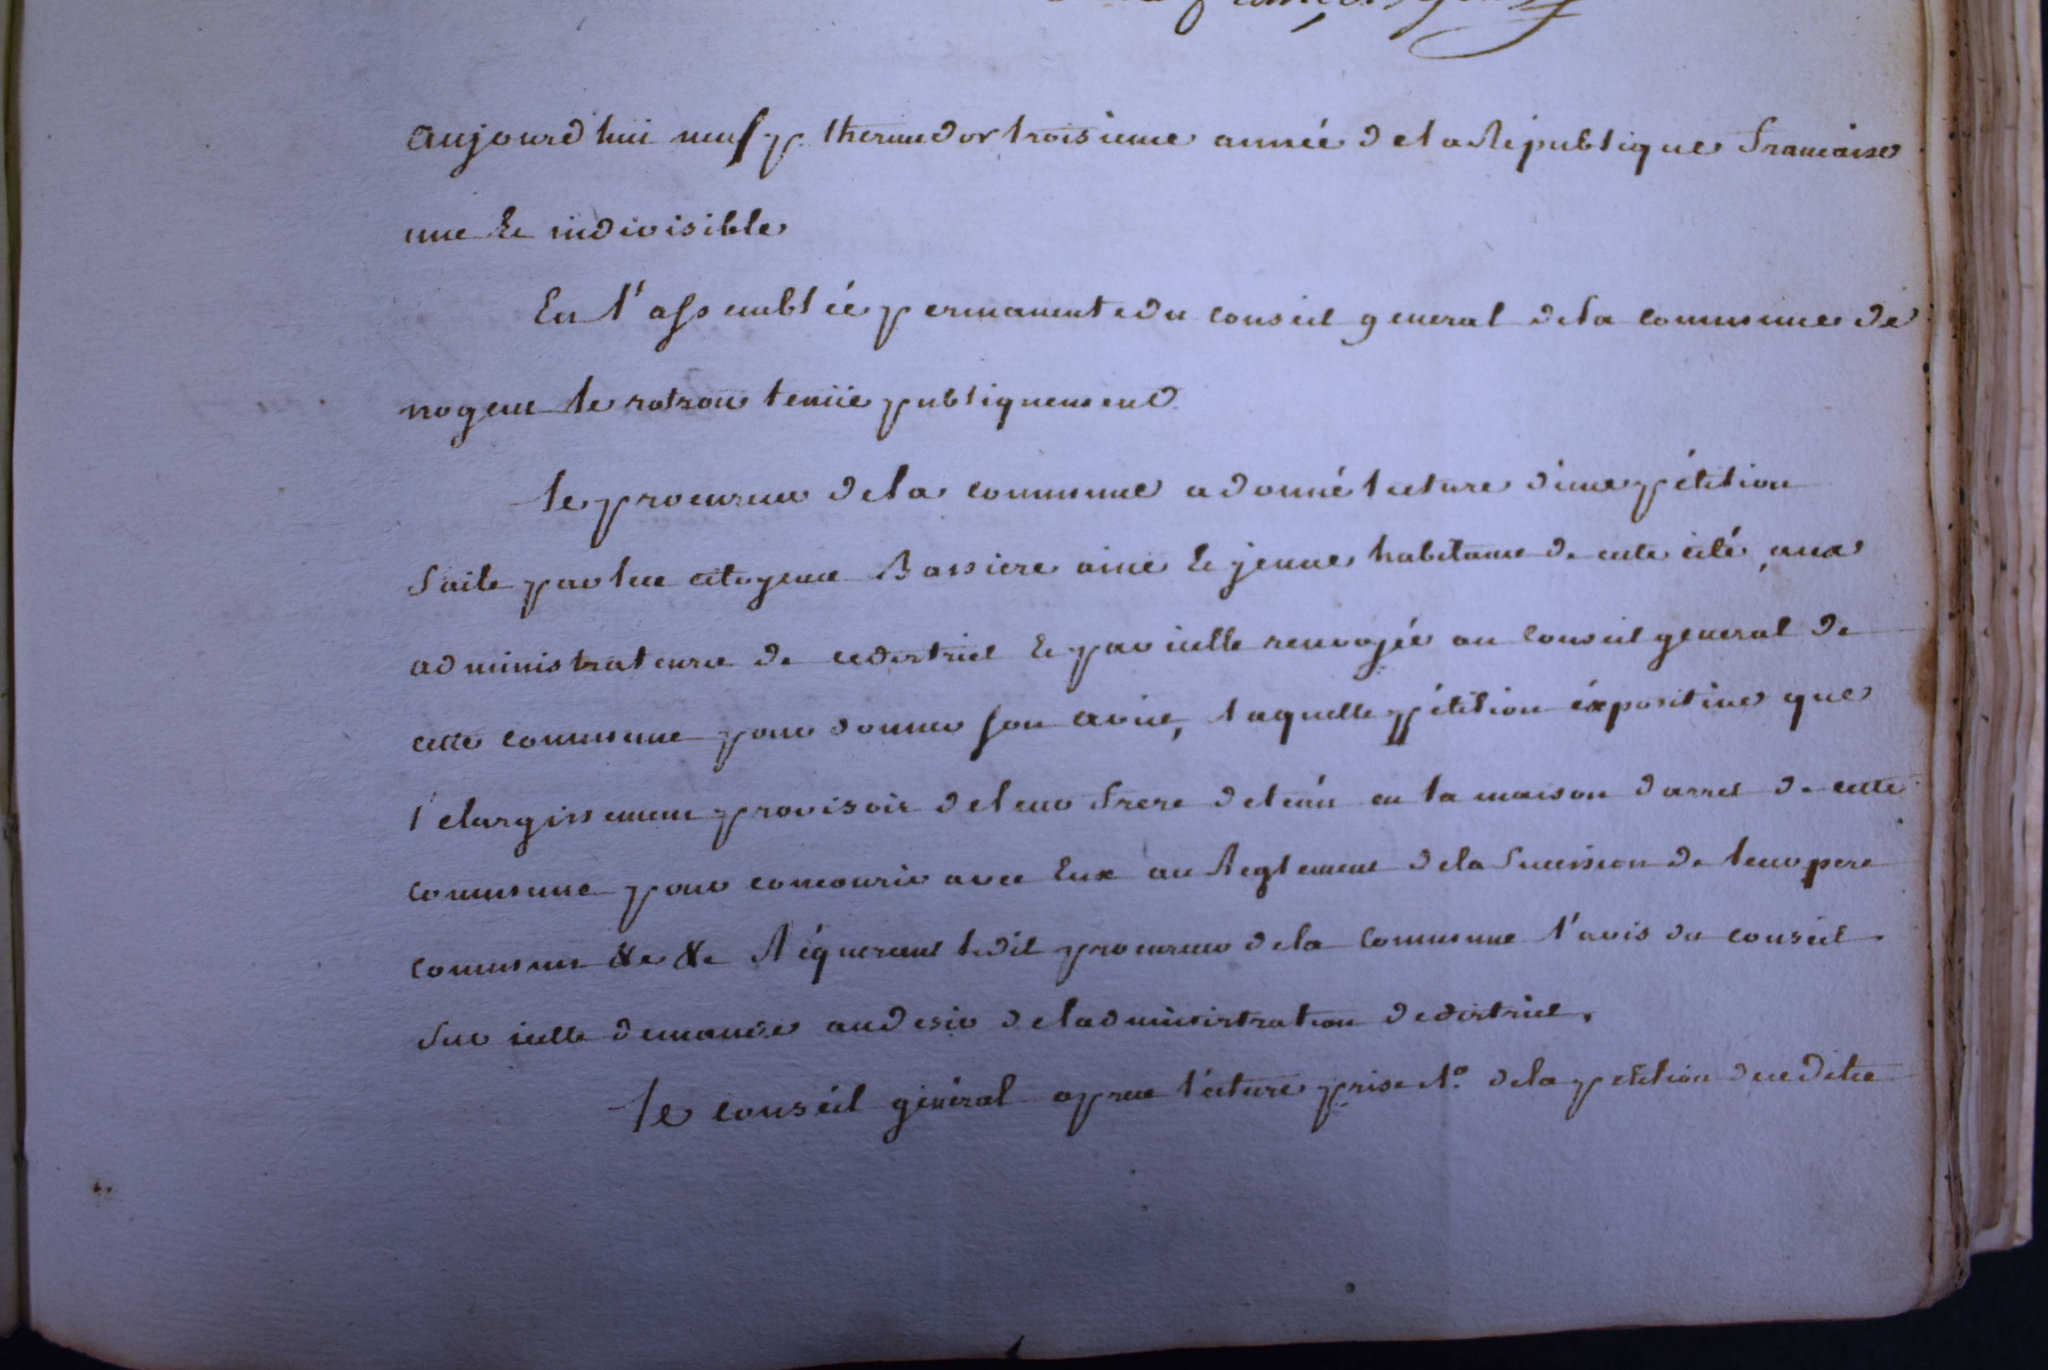 aujourd'huii neuf thermidor troisieme année de la Republique francaise
une & indivisible
En l'assemblée permanente du conseil general de la commune de
nogent le rotrou tenüe publiquement
le procureur de la commune a donné lecture d'une pétition
faite par les citoyens Bassiere ainé & jeune habitans de cette cité, aux
administrateurs de ce district & par icelle renvojée au Conseil general de
cette commune pour donner son avis, laquelle pétition éxpositive que
l'elargissement provisoir de leur frere detenu en la maison d'arret de cette
commune pour concourir avec Eux au Reglement de la Succession de leur pere
commun &c &c Réquerant ledit procureur de la Commune l'avis du conseil
sur icelle demande au desir de l'administration de district.
le conseil général apres lecture prise 1o. de la petition desdits